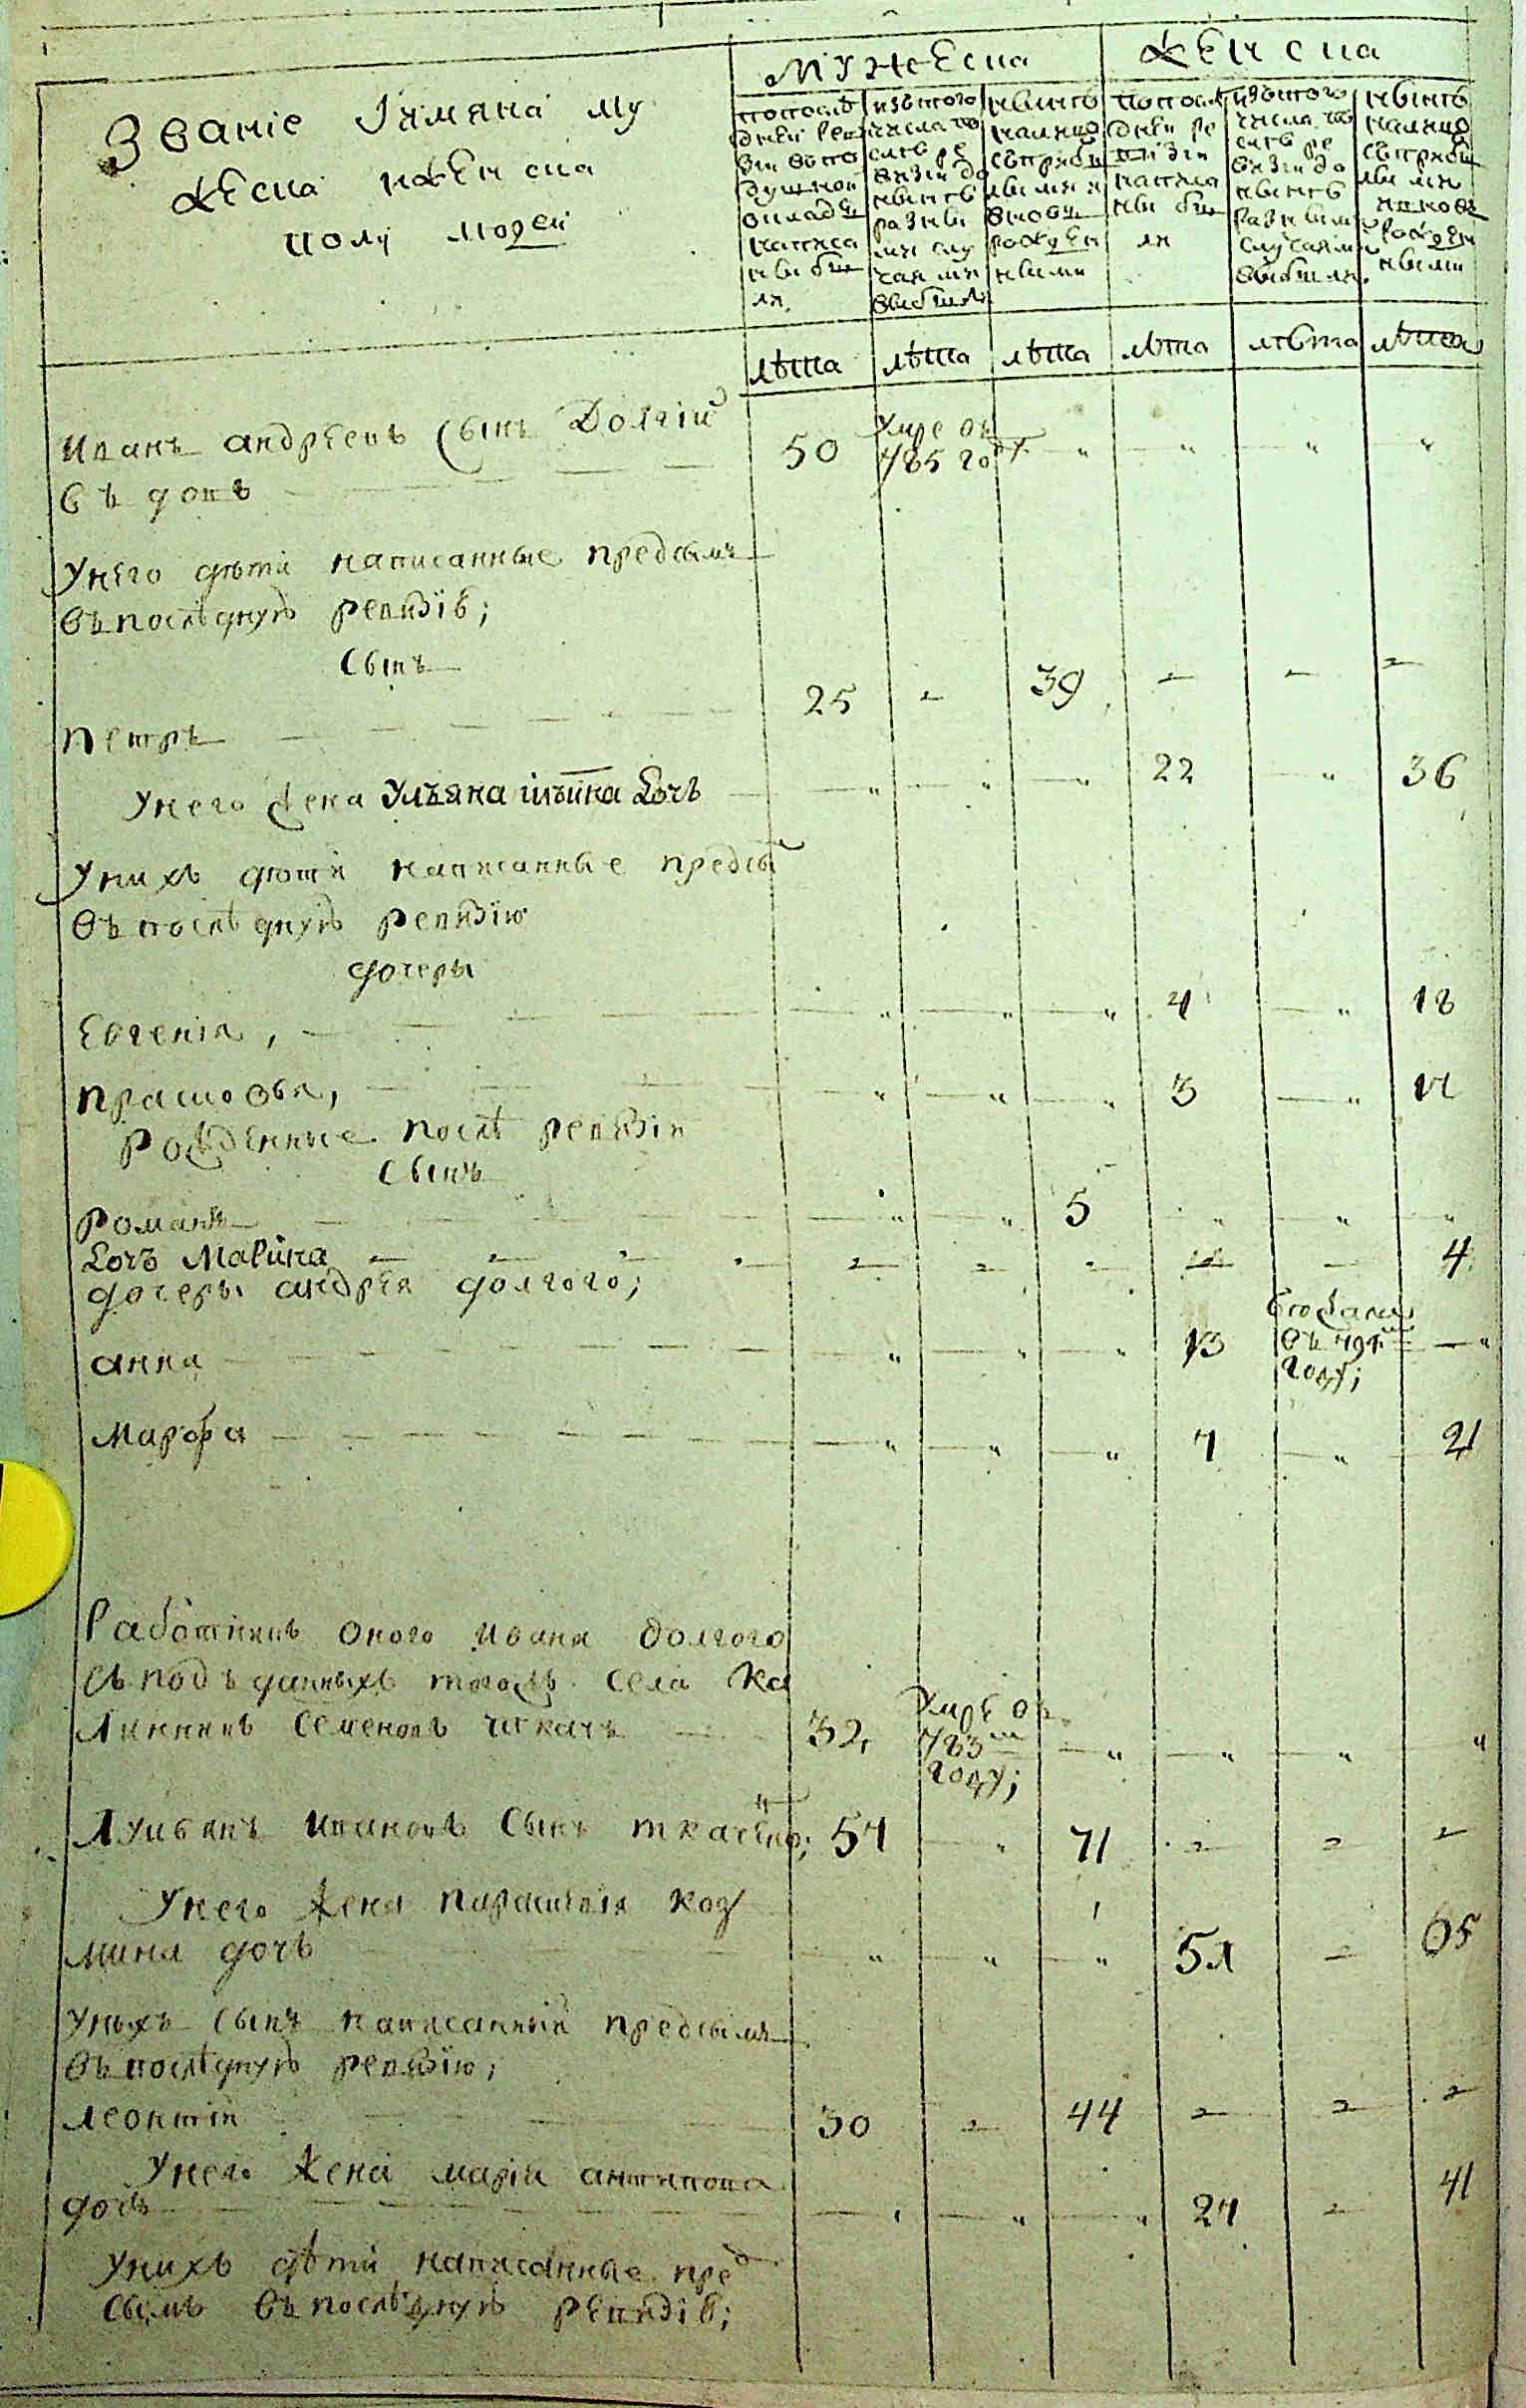 мужеска женска
Званіе Имяна му
жеска иженска
полу людей
попослѣ
дней реви
зіи въпо
душной
окладъ
написа
ны бы
ли
изътого
числа по
слѣ ре
визіи до
нынѣ
разны
ми слу
чаями
выбыли
нынѣ
налицо
съприбы
лыми и
вновь
рожден
ными
попослѣ
дней ре
визіи
написа
ны бы
ли
изътого
числа по
слѣ ре
визіи до
нынѣ
разными
случаями
выбыли
нынѣ
налицо
съприбы
лыми
ивновь
рожден
ными
лѣта лѣта лѣта лѣта лѣта лѣта
Иванъ андреевъ Сынъ Долгій 50 умре въ
785 году " " " "
Унего дѣти написанные предсымъ
въпослѣдную ревизію;
Сынъ
Петръ 25 39
Унего жена Ульяна ильина Дочь " " " 22 " 36
Унихъ дѣти написанные предсы
въпослѣдную ревизію
дочеры
Евгенія, " " " 4 " 18
Прасковья, " " " 3 " 17
Рожденные послѣ ревизіи
Сынъ
Романъ " " 5 " " "
Дочь Марина 4
дочеры андрея долгого;
анна " " " 13 въ 791м
году; "
Марфа " " " 7 " 21
Работникъ оного ивана долгого
съ подъданныхъ тогожъ села Ка
линникъ Семеновъ ткачъ 32, умре въ
783м
году; " " " "
Лукьянъ ивановъ Сынъ ткаченко; 57 " 71
Унего жена параскевія коз
мина дочь " " " 51 65
Унихъ Сынъ написанный предсымъ
въпослѣдную ревизію;
леонтій 30 44
Унего жена марія антипова
дочь " " " 27 41
Унихъ дѣти написанные пред
сымъ въпослѣдную ревизію;